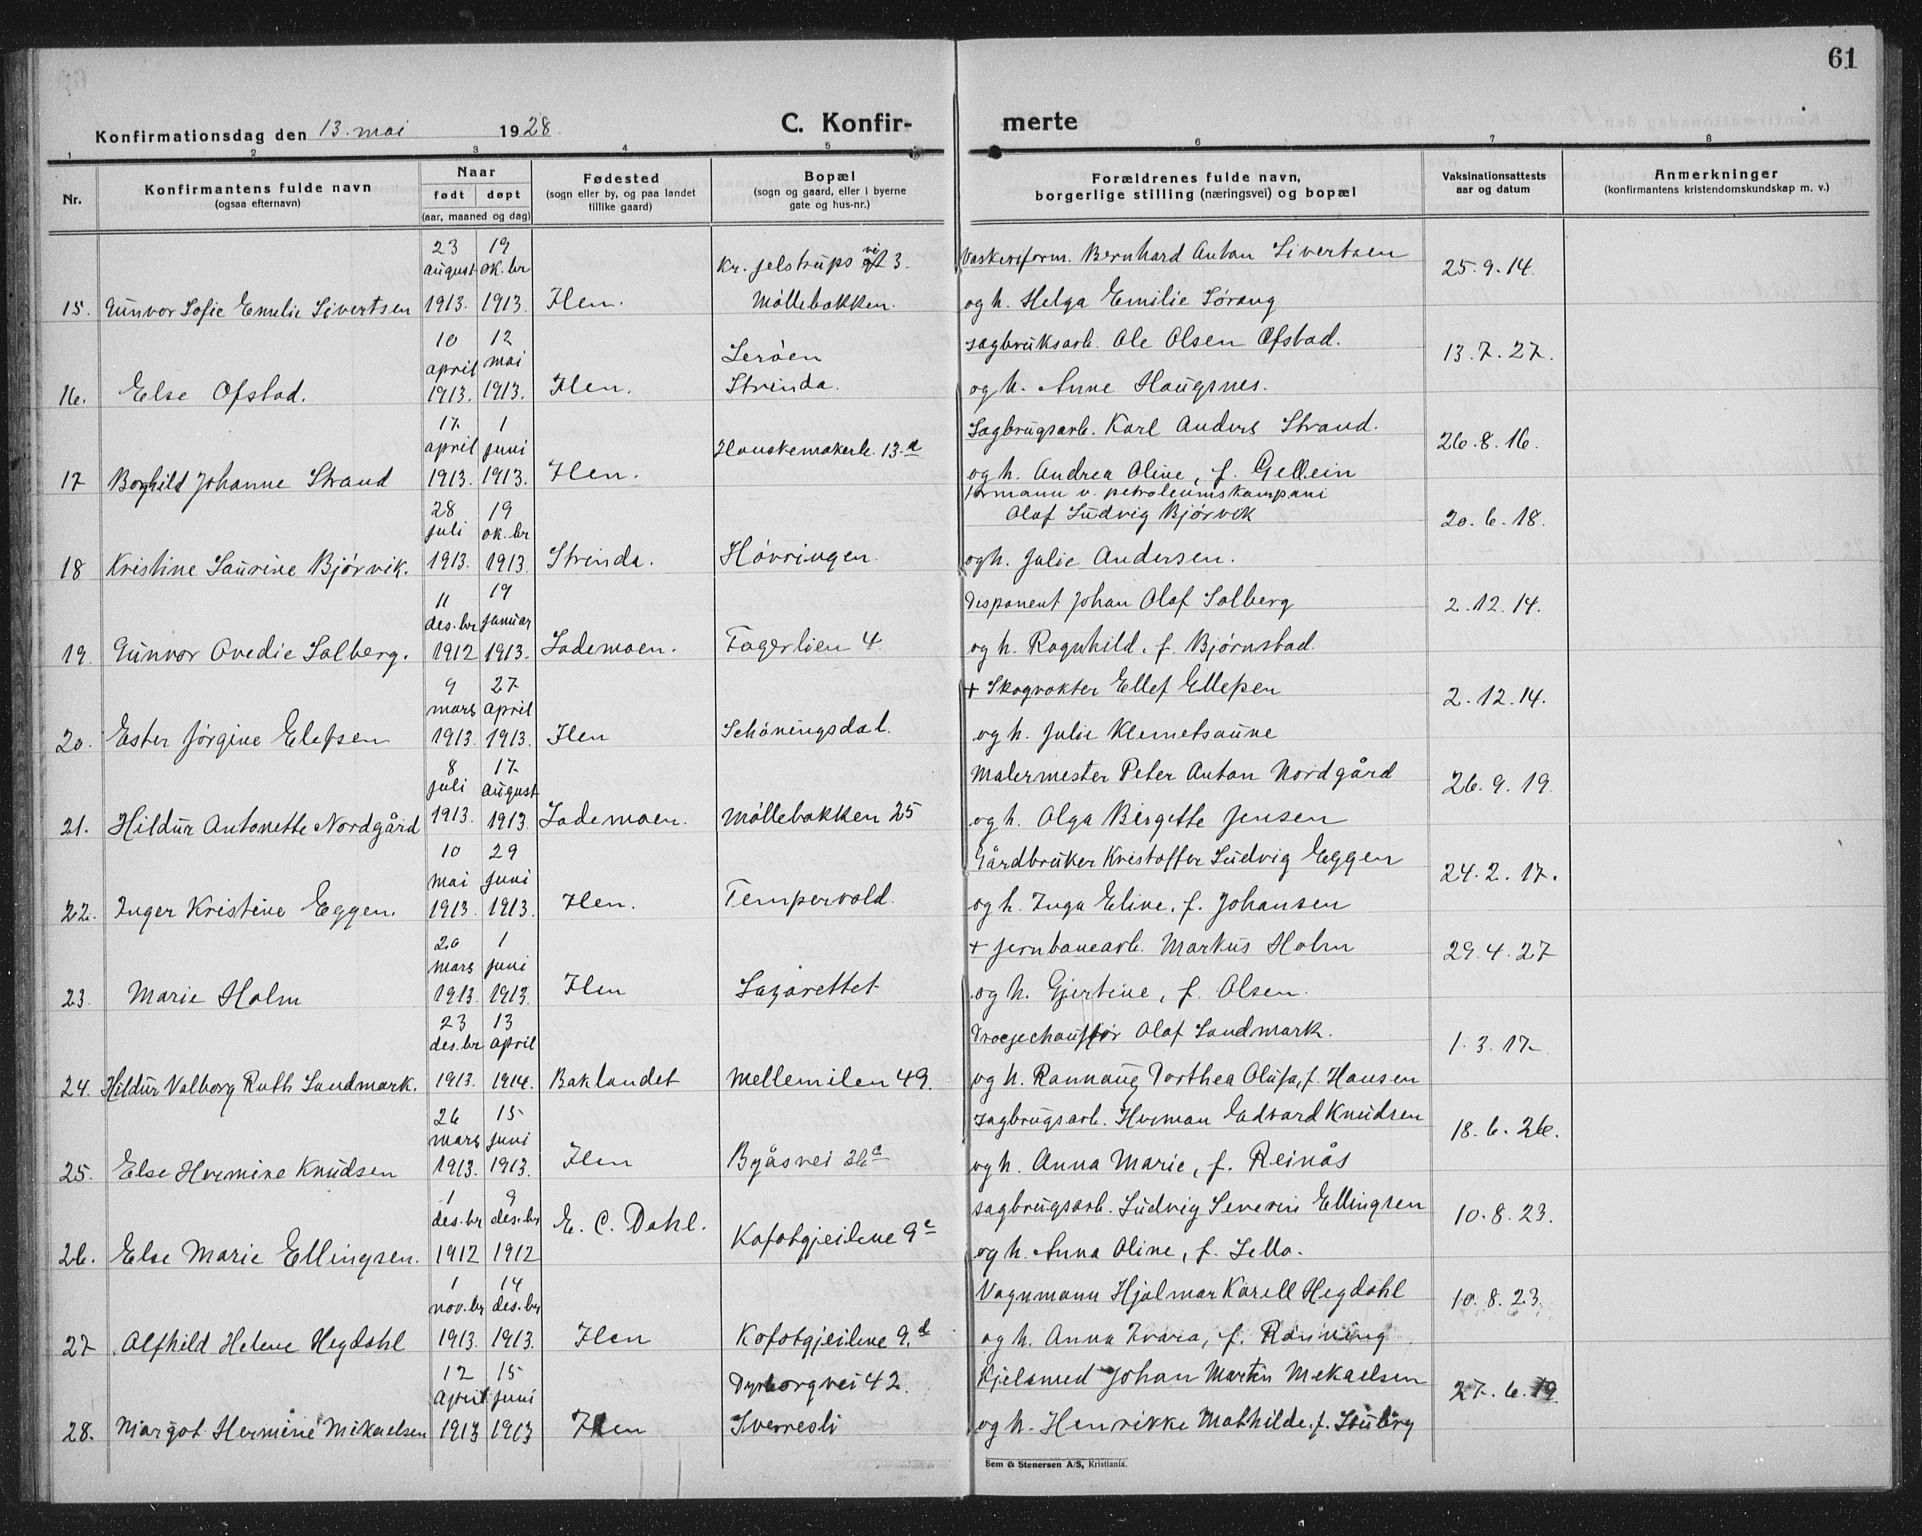 61
Konfirmationsdag den 13. mai 1928. C. Konfir- merte
1 2 3 4 5 6 7 8
Nr. Konfirmantens fulde navn (ogsaa efternavn) Naar født døpt (aar, maaned og dag) Fødested (sogn eller by, og paa landet tillike gaard) Bopæl (sogn og gaard, eller i byerne gate og hus-nr.) Forældrenes fulde navn, borgerlige stilling (næringsvei) og bopæl Vaksinationsattests aar og datum Anmerkninger (konfirmantens kristendomskundskap m. v.)
23 august 19 ok.br Kr. Jelstrups vei 3. Vaskeriform. Bernhard Anton Sivertsen 25.9.14.
15. Gunvor Sofie Emelie Sivertsen 1913. 1913. Ilen. Møllebakken. og h. Helga Emilie Sørang
10 april 12 mai Lerøen Sagbruksarb. Ole Olsen Ofstad. 13.7.27.
16. Else Ofstad. 1913. 1913. Ilen. Strinda. og h. Anne Haugsnes.
17. april 1 juni Hanskemakerb. 13.a Sagbrugsarb. Karl Anders Strand. 26.8.16.
17 Borghild Johanne Strand 1913. 1913. Ilen. og h. Andrea Oline, f. Gellein
28 juli 19 ok.br Formann v. petroleumskompani
Olaf Ludvig Bjørvik 20.6.18.
18 Kristine Laurine Bjørvik. 1913. 1913. Strinda. Høvringen. og h. Julie Andersen.
11 des.br 19 januar Disponent Johan Olaf Solberg 2.12.14.
19. Gunvor Ovedie Solberg. 1912 1913. Lademoen. Fagerlien 4. og h. Ragnhild, f. Bjørnstad.
9 mars 27 april + Skogvokter Ellef Ellefsen 2.12.14.
20. Ester Jørgine Elefsen 1913. 1913. Ilen Schøningsdal. og h. Julie Klemetsaune
8 juli 17 august Malermester Peter Anton Nordgård 26.9.19.
21. Hildur Antonette Nordgård 1913. 1913. Lademoen. Møllebakken 25 og h. Olga Birgette Jensen
10 mai 29 juni Gårdbruker Kristoffer Ludvig Eggen 24.2.17.
22. Inger Kristine Eggen. 1913. 1913. Ilen. Tempervold. og h. Inga Eline, f. Johansen
20 mars 1 juni + jernbanearb. Markus Holm 29.4.27
23. Marie Holm 1913. 1913. Ilen Lazarettet og h. Gjertine, f. Olsen.
23 des.br 13 april Drosjechauffør Olaf Sandmark. 1.3.17.
24. Hildur Valborg Ruth Sandmark. 1913. 1914. Baklandet Mellemilen 49. og h. Rannaug Dorthea Olufa, f. Hansen
26 mars 15 juni Sagbrugsarb. Herman Edvard Knudsen 18.6.26.
25. Else Hermine Knudsen 1913. 1913. Ilen Byåsvei 36c og h. Anna Marie, f. Reinås
1 des.br 9 des.br Sagbrugsarb. Ludvig Severin Ellingsen 10.8.23.
26. Else Marie Ellingsen. 1912 1912 E. C. Dahl. Kofotgjeilene 9c og h. Anna Oline, f. Sella.
1 nov.br 14 des.br Vognmann Hjalmar Karell Hegdahl 10.8.23.
27 Alfhild Helene Hegdahl 1913. 1913. Ilen Kofotgjeilene 9.d og h. Anna Ivara, f. Rønning.
12 April 15 juni Dyrborgvei 42. Kjelsmed Johan Martin Mekaelsen 27.6.19
28. Margot Hermine Mikaelsen 1913 1913 Ilen Sverresli og h. Henrikke Mathilde, f. Stuberg
Sem & Stenersen A/S, Kristiania.